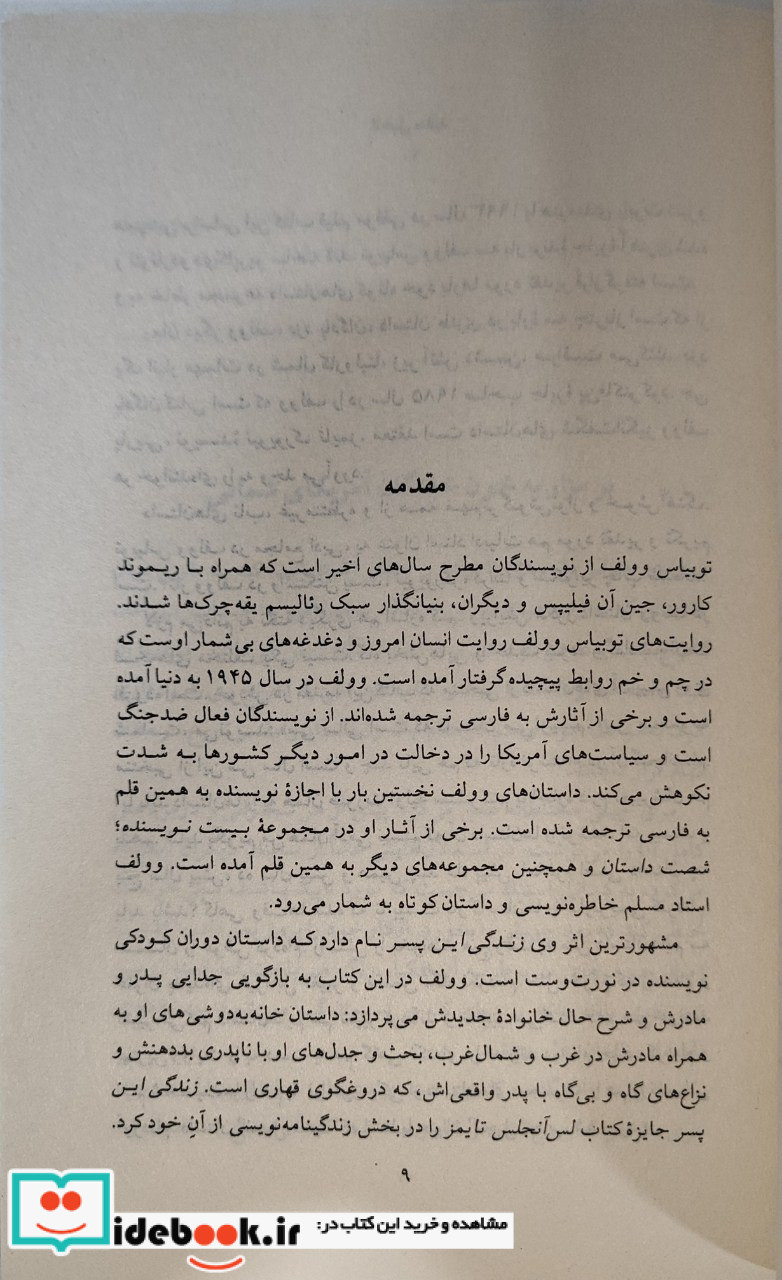 مقدمه
توبیاس وولف از نویسندگان مطرح سال‌های اخیر است که همراه با ریموند
کارور، جین آن فیلیپس و دیگران، بنیانگذار سبک رئالیسم یقه‌چرک‌ها شدند.
روایت‌های توبیاس وولف روایت انسان امروز و دغدغه‌های بی‌شمار اوست که
در چم و خم روابط پیچیده گرفتار آمده است. وولف در سال ۱۹۴۵ به دنیا آمده
است و برخی از آثارش به فارسی ترجمه شده‌اند. از نویسندگان فعال ضدجنگ
است و سیاست‌های آمریکا را در دخالت در امور دیگر کشورها به شدت
نکوهش می‌کند. داستان‌های وولف نخستین بار با اجازهٔ نویسنده به همین قلم
به فارسی ترجمه شده است. برخی از آثار او در مجموعهٔ بیست نویسنده؛
شصت داستان و همچنین مجموعه‌های دیگر به همین قلم آمده است. وولف
استاد مسلم خاطره‌نویسی و داستان کوتاه به شمار می‌رود.
مشهورترین اثر وی زندگی این پسر نام دارد که داستان دوران کودکی
نویسنده در نورت‌وست است. وولف در این کتاب به بازگویی جدایی پدر و
مادرش و شرح حال خانوادهٔ جدیدش می‌پردازد: داستان خانه‌به‌دوشی‌های او به
همراه مادرش در غرب و شمال‌غرب، بحث و جدل‌های او با ناپدری بددهنش و
نزاع‌های گاه و بی‌گاه با پدر واقعی‌اش، که دروغگوی قهاری است. زندگی این
پسر جایزهٔ کتاب لس‌آنجلس تایمز را در بخش زندگینامه‌نویسی از آنِ خود کرد.
۹
مشاهده و خرید این کتاب در:
idebook.ir